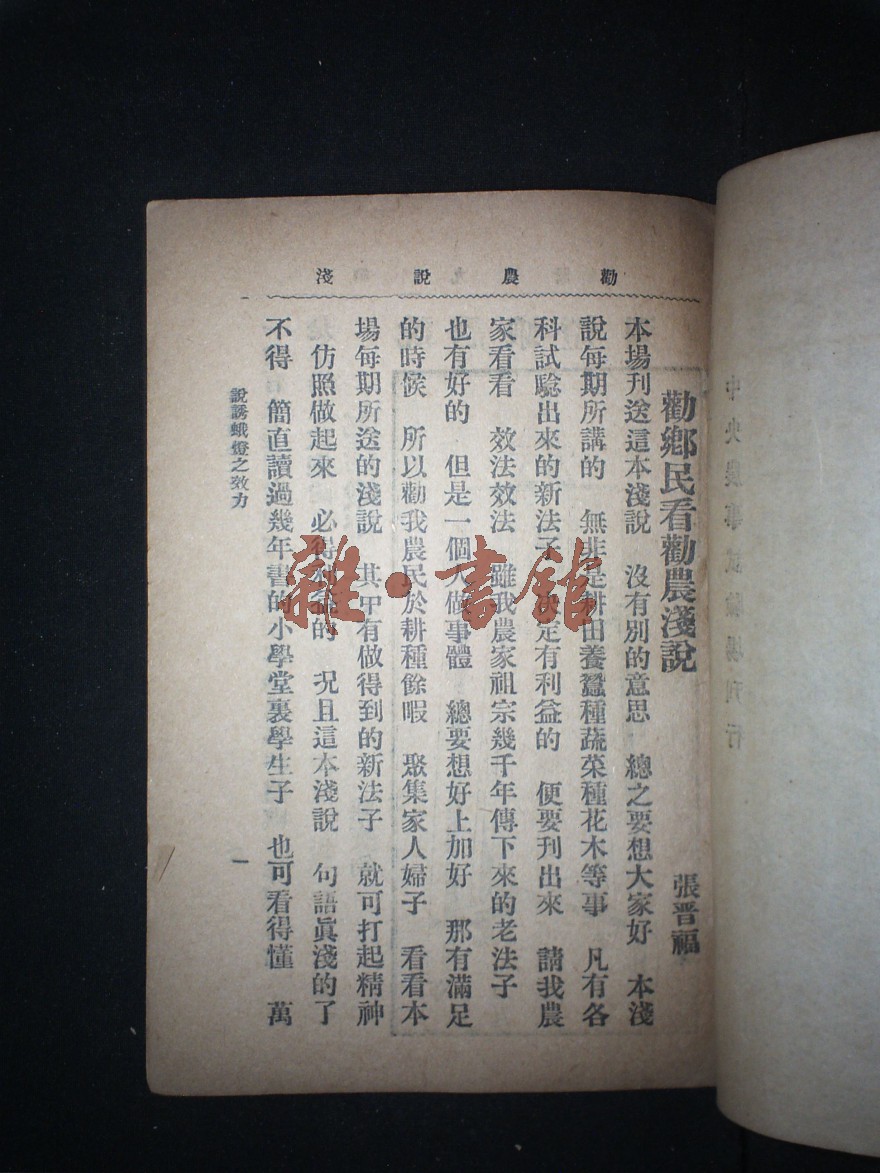 勸農說淺
勸鄉民看勸農淺說　張晋福
本場刊送這本淺說　沒有別的意思　總之要想大家好　本淺
說每期所講的　無非是耕田養蠶種蔬菜種花木等事　凡有各
科試驗出來的新法子　決定有利益的　便要刊出來　請我農
家看看　效法效法　雖我農家祖宗幾千年傳下來的老法子
也有好的　但是一個人做事體　總要想好上加好　那有滿足
的時候　所以勸我農民於耕種餘暇　聚集家人婦子　看看本
場每期所送的淺說　其甲有做得到的新法子　就可打起精神
仿照做起來　必得利益的　况且這本淺說　句語眞淺的了
不得　簡直讀過幾年書的小學堂裏學生子　也可看得懂　萬
說誘蛾燈之效力
一
中央農事試驗場刊行
雜·書館